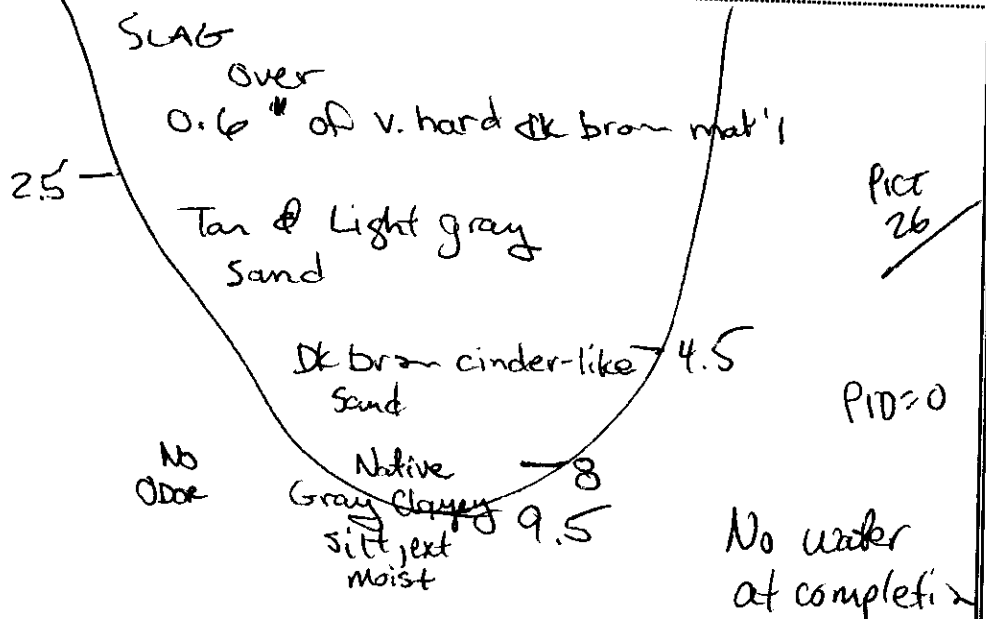 SLAG
over
0.6" of v. hard dk brown mat'l
2.5
PICT
26
Tan & Light gray
sand
Dk brown cinder-like
sand
4.5
PID=0
No
ODOR
Native
8
Gray Clayey
silt, ext
moist
9.5
No water
at completion